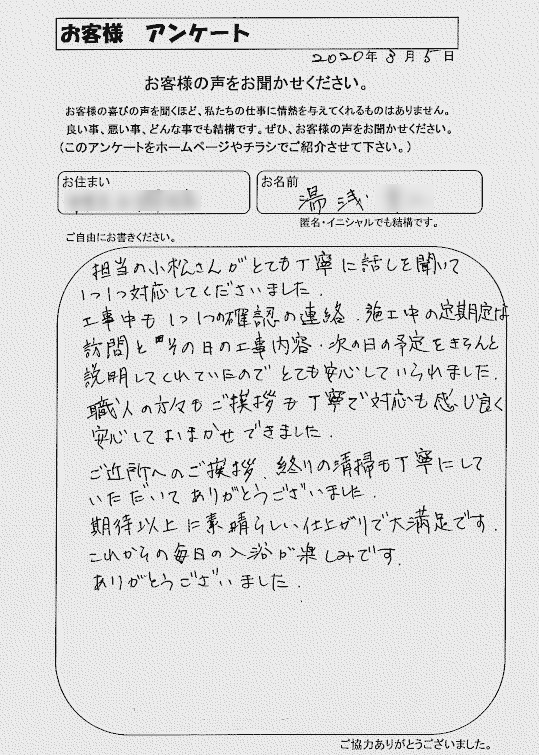 お客様 アンケート
2020年3月5日
お客様の声をお聞かせください。
お客様の喜びの声を聞くほど、私たちの仕事に情熱を与えてくれるものはありません。
良い事、悪い事、どんな事でも結構です。ぜひ、お客様の声をお聞かせください。
(このアンケートをホームページやチラシでご紹介させて下さい。)
お住まい
お名前
湯浅
匿名・イニシャルでも結構です。
ご自由にお書きください。
担当の小松さんがとても丁寧に話しを聞いて
1つ1つ対応してくださいました.
工事中も1つ1つの確認の連絡.施工中の定期定な
訪問とその日の工事内容・次の日の予定をきちんと
説明してくれていたのでとても安心していられました.
職人の方々もご挨拶も丁寧で対応も感じ良く
安心しておまかせできました.
ご近所へのご挨拶.終りの清掃も丁寧にして
いただいてありがとうございました.
期待以上に素晴らしい仕上がりで大満足です.
これからの毎日の入浴が楽しみです.
ありがとうございました.
ご協力ありがとうございました。